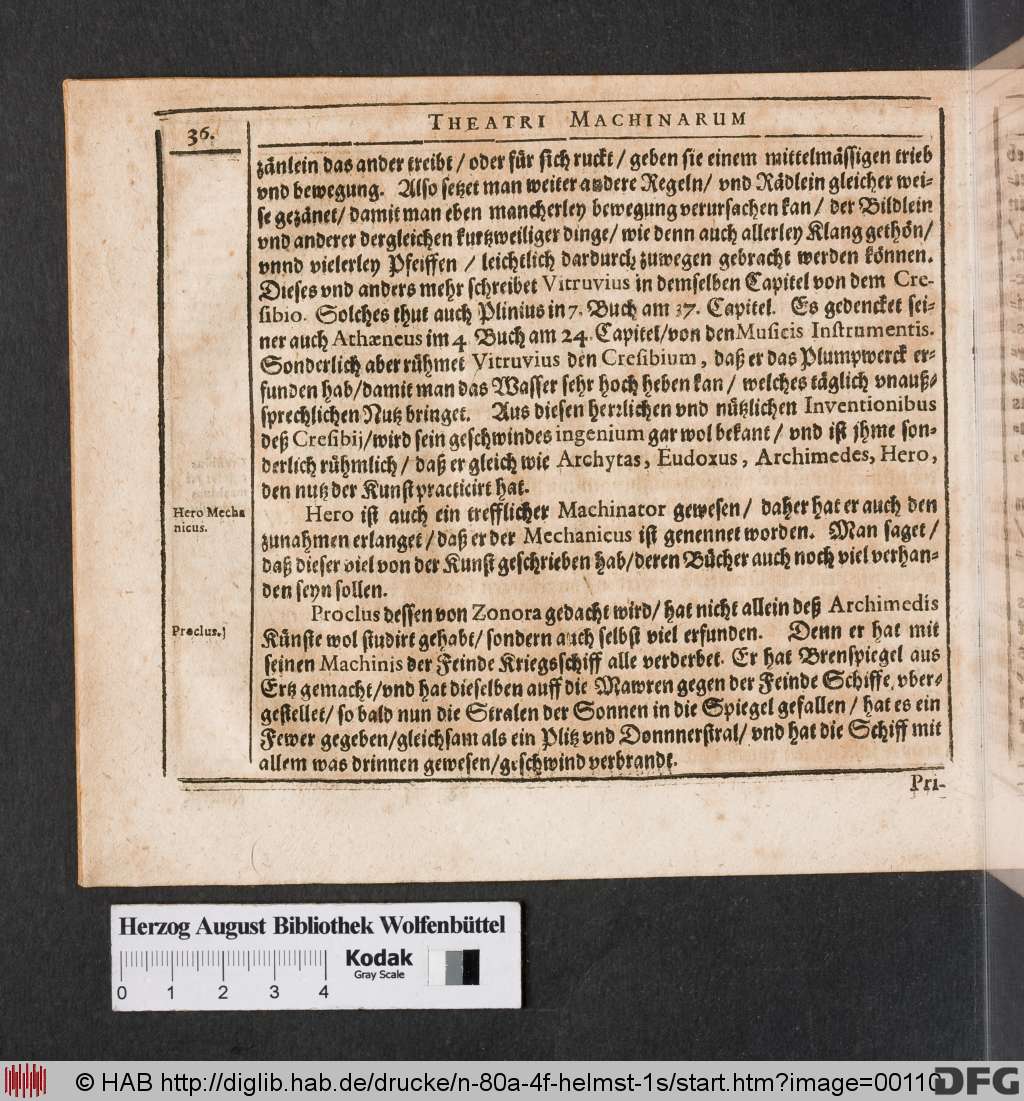 36.
THEATRI MACHINARUM
zänlein das ander treibt / oder für sich ruckt / geben sie einem mittelmässigen trieb
vnd bewegung. Also setzet man weiter andere Regeln / vnd Rädlein gleicher wei-
se gezänet / damit man eben mancherley bewegung verursachen kan / der Bildlein
vnd anderer dergleichen kurtzweiliger dinge / wie denn auch allerley Klang gethön /
vnnd vielerley Pfeiffen / leichtlich dardurch zuwegen gebracht werden können.
Dieses vnd anders mehr schreibet Vitruvius in demselben Capitel von dem Cre-
sibio. Solches thut auch Plinius in 7. Buch am 37. Capitel. Es gedencket sei-
ner auch Athæneus im 4 Buch am 24. Capitel / von den Musicis Instrumentis.
Sonderlich aber rühmet Vitruvius den Cresibium, daß er das Plumpwerck er-
funden hab / damit man das Wasser sehr hoch heben kan / welches täglich vnauß-
sprechlichen Nutz bringet. Aus diesen herrlichen vnd nützlichen Inventionibus
deß Cresibij / wird sein geschwindes ingenium gar wol bekant / vnd ist jhme son-
derlich rühmlich / daß er gleich wie Archytas, Eudoxus, Archimedes, Hero,
den nutz der Kunst practicirt hat.
Hero Mecha
nicus.
Hero ist auch ein trefflicher Machinator gewesen / daher hat er auch den
zunahmen erlanget / daß er der Mechanicus ist genennet worden. Man saget /
daß dieser viel von der Kunst geschrieben hab / deren Bücher auch noch viel verhan-
den seyn sollen.
Proclus.
Proclus dessen von Zonora gedacht wird / hat nicht allein deß Archimedis
Künste wol studirt gehabt / sondern auch selbst viel erfunden. Denn er hat mit
seinen Machinis der Feinde Kriegsschiff alle verderbet. Er hat Brenspiegel aus
Ertz gemacht / vnd hat dieselben auff die Mawren gegen der Feinde Schiffe vber-
gestellet / so bald nun die Stralen der Sonnen in die Spiegel gefallen / hat es ein
Fewer gegeben / gleichsam als ein Plitz vnd Donnnerstral / vnd hat die Schiff mit
allem was drinnen gewesen / geschwind verbrandt.
Pri-
Herzog August Bibliothek Wolfenbüttel
Kodak
Gray Scale
0 1 2 3 4
© HAB http://diglib.hab.de/drucke/n-80a-4f-helmst-1s/start.htm?image=00110
DFG